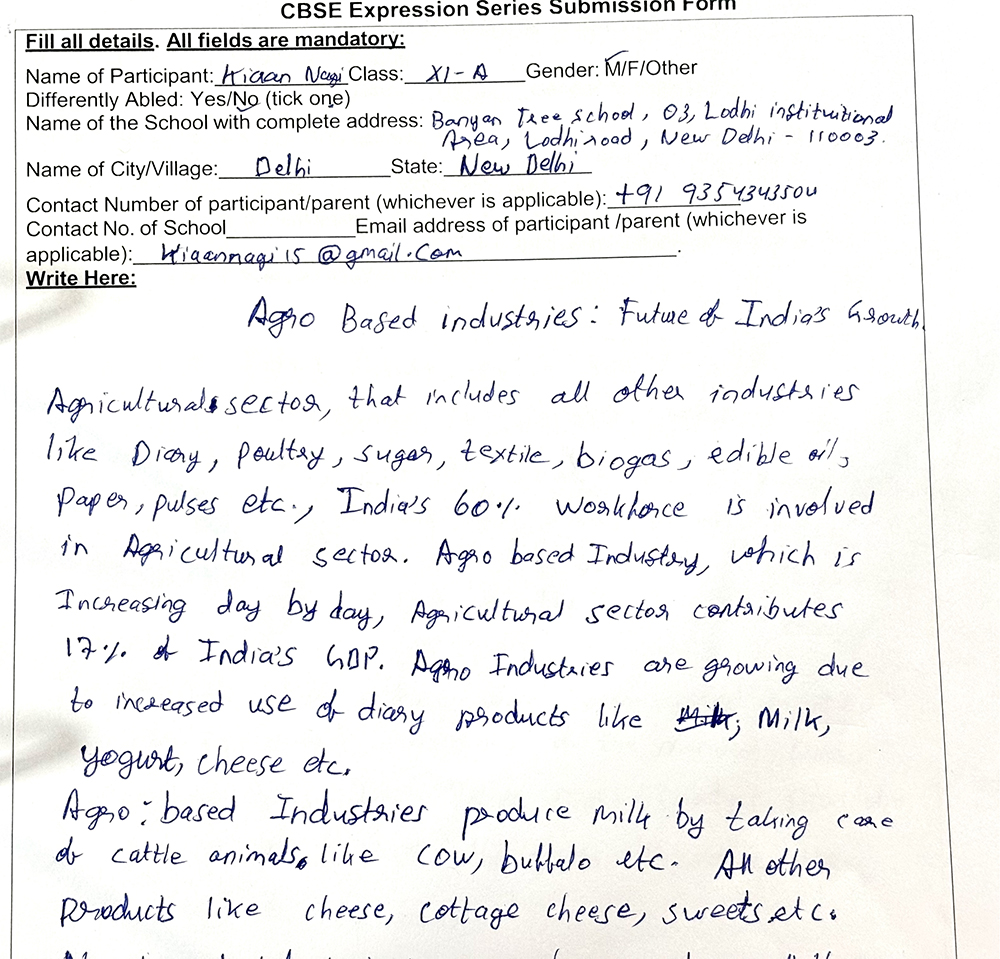 CBSE Expression Series Submission Form
Fill all details. All fields are mandatory:
Name of Participant: Kiaan Nagi Class: XI-A Gender: M/F/Other
Differently Abled: Yes/No (tick one)
Name of the School with complete address: Banyan Tree school, 03, Lodhi instituitional
Area, Lodhi road, New Delhi - 110003.
Name of City/Village: Delhi State: New Delhi
Contact Number of participant/parent (whichever is applicable): +91 9354343504
Contact No. of School Email address of participant /parent (whichever is
applicable): Kiaannagi15@gmail.com
Write Here:
Agro Based industries: Future of India's Growth.
Agricultural sector, that includes all other industries
like Diary, Poultry, sugar, textile, biogas, edible oil,
Paper, pulses etc., India's 60% workforce is involved
in Agricultural sector. Agro based Industry, which is
Increasing day by day, Agricultural sector contributes
17% of India's GDP. Agro Industries are growing due
to increased use of diary products like Milk, Milk,
Yogurt, cheese etc.
Agro: based Industries produce milk by taking care
of cattle animals, like cow, buffalo etc. All other
Products like cheese, cottage cheese, sweets, etc.